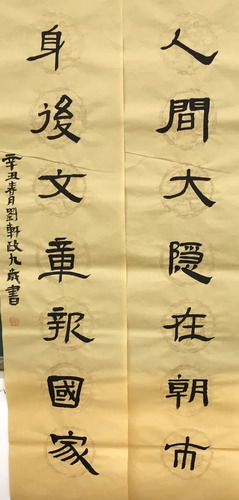 人間大隐在朝市
身後文章報國家
辛丑春月劉軒政九歲書